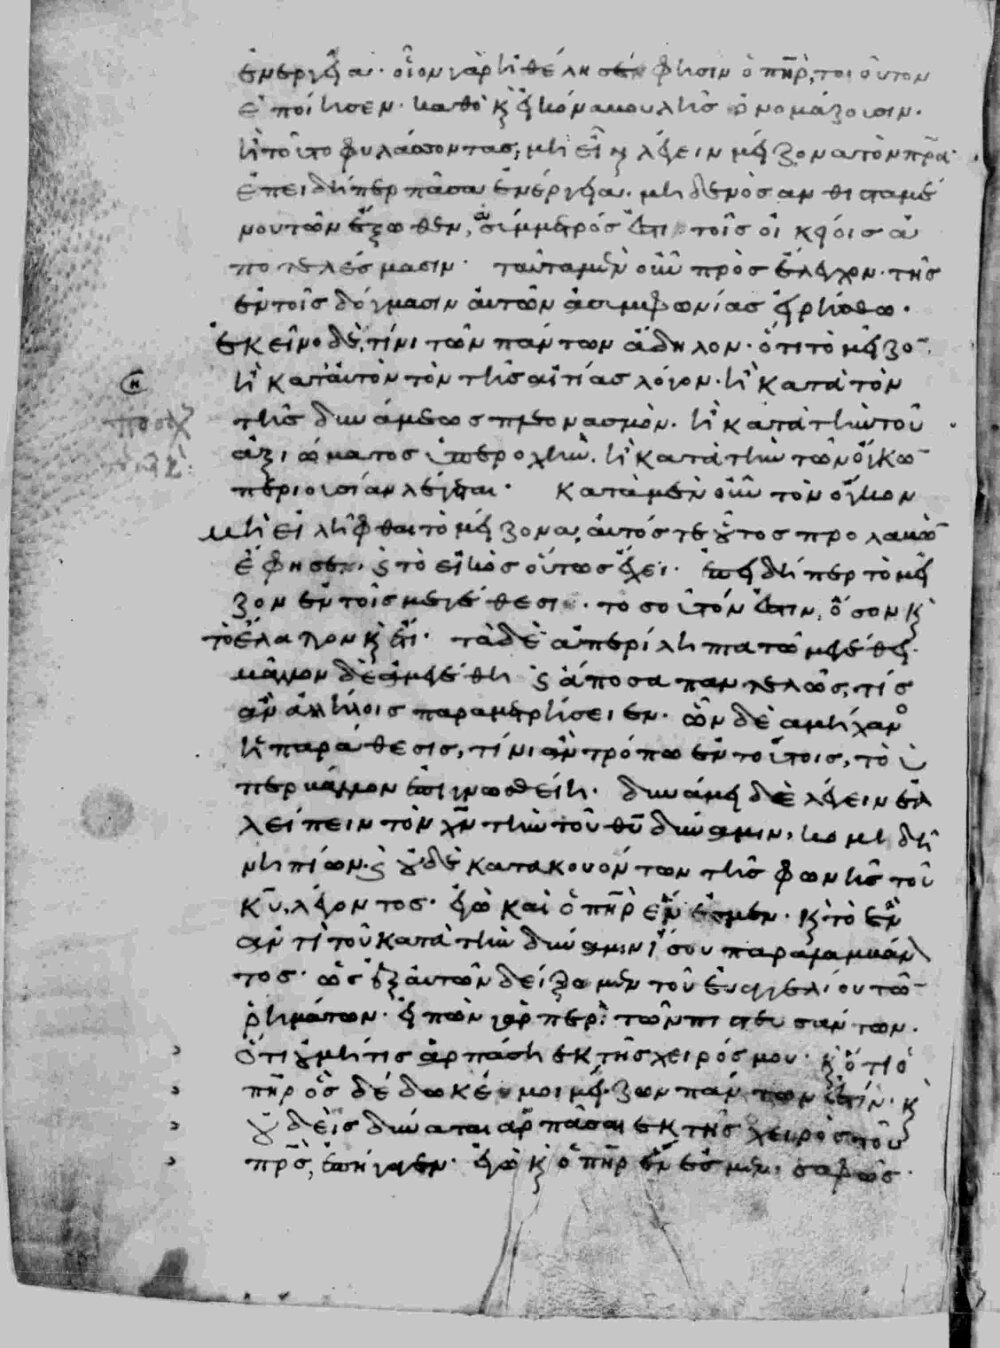 ἐνεργεία· οἷον γὰρ ἠθέλησεν φησιν ὁ πηρ, τοιοῦτον
ἐποίησεν· καθὸ κ εἰκόνα κουλης ὀνομάζουσιν·
ἢ τοῦτο φυλάσσοντας, μὴ εἶναι λέγειν μείζονα τὸν πρα·
ἐπειδήπερ πᾶσα ἐνέργεια· μηδενὸς ἀνθισταμέ
νου τῶν ἔξωθεν, σύμμετρός ἐστι τοῖς οἰκείοις ἀ
ποτελέσμασιν· ταῦτα μὲν οὖν πρὸς ἔλεγχον· τῆς
ἐν τοῖς δόγμασιν αὐτῶν ἀσυμφωνίας εἰρήσθω·
ἐκεῖνο δὲ, τίνι τῶν πάντων ἄδηλον· ὅτι τὸ μεῖζο
ἢ κατ' αὐτὸν τὸν τῆς αἰτίας λόγον· ἢ κατὰ τὸν
τῆς δυνάμεως πλεονασμὸν· ἢ κατὰ τὴν τοῦ
ἀξιώματος ὑπεροχὴν· ἢ κατὰ τὴν τῶν ὄγκω
περιουσίαν λέγεται· κατὰ μὲν οὖν τὸν ὄγκον
μὴ εἰλῆφθαι τὸ μείζονα, αὐτός τε οὗτος προλαβὼ
ἔφησεν· κ τὸ εἰκὸς οὕτως ἔχει· ἐπειδήπερ τὸ μεῖ
ζον ἐν τοῖς μεγέθεσι· τοσοῦτόν ἐστιν, ὅσον κ
τὸ ἔλαττον κ ἔτι· τὰ δὲ ἀπερίληπτα τῶ μεγέθει·
μᾶλλον δὲ ἀμεγέθη κ ἄποσα παντελῶς, τίς
ἂν ἀλλήλοις παραμετρήσειεν· ὧν δὲ ἀμήχανο
ἡ παράθεσις, τίνι ἂν τρόπω ἐν τούτοις, τὸ ὑ
περβάλλον ἐπιγνωσθείη· δυνάμει δὲ λέγειν ἐλ
λείπειν τὸν χν τὴν τοῦ θυ δύναμιν, κομιδῆ
νηπίων· κ οὐδὲ κατακουόντων τῆς φωνῆς τοῦ
κυ, λέγοντος· ἐγὼ καὶ ὁ πηρ ἕν ἐσμεν· κ τὸ ἓν
ἀντὶ τοῦ κατὰ τὴν δύναμιν ἴσου παραλαμβάν
τος· ὡς ἐξ αὐτῶν δείξομεν τοῦ εὐαγγελίου τῶ
ῥημάτων· εἰπὼν γὰρ περὶ τῶν πιστευσάντων·
ὅτι οὐ μή τις ἁρπάση ἐκ τῆς χειρός μου· κ ὅτι ὁ
πηρ ὃς δέδωκέν μοι μείζων πάντων ἐστίν· κ
οὐδεὶς δύναται ἁρπάσαι ἐκ τῆς χειρὸς τοῦ
πρς, ἐπήγαγεν· ἐγὼ κ ὁ πηρ ἕν ἐσμεν, σαφῶς·